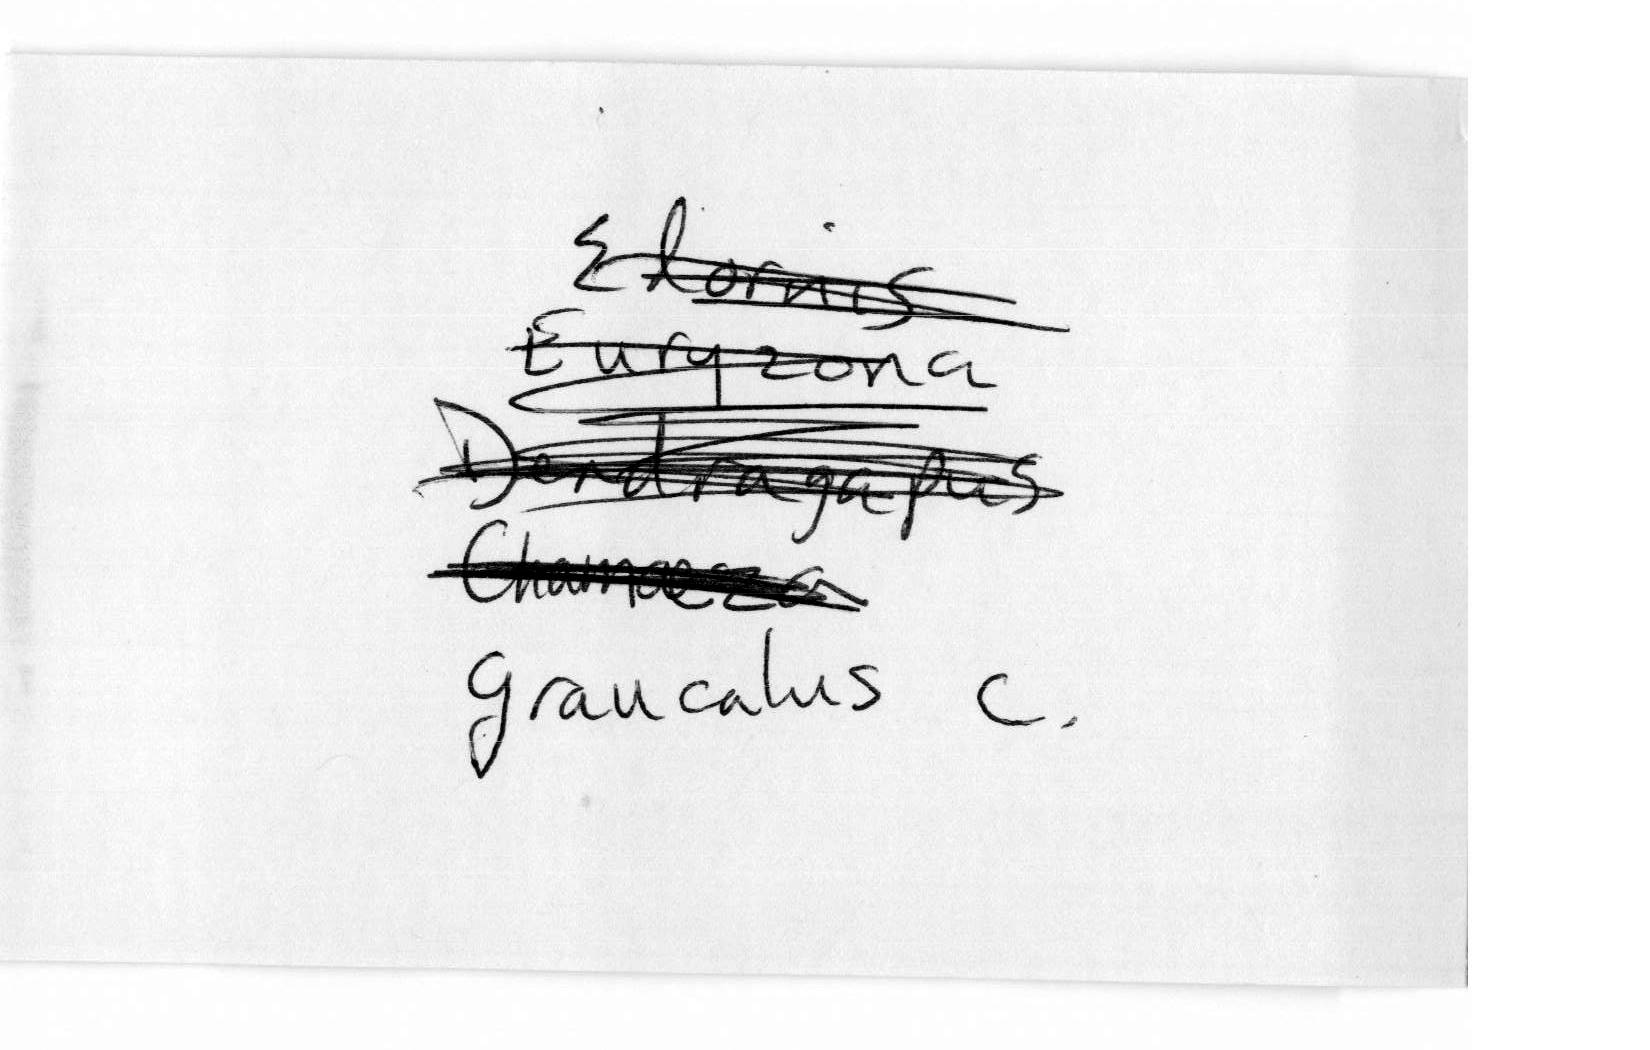 Elornis
Euryzona
Dendragapus
Chamaeza
Graucalus C.